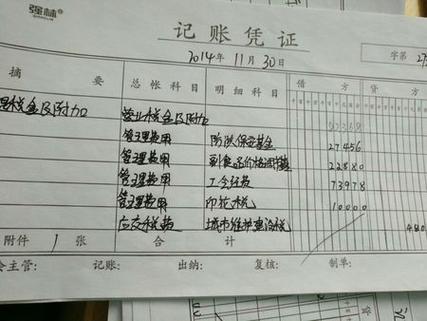 强林
记账凭证
2014年11月30日 字第 27
摘要 总帐科目 明细科目 借方 贷方
税金及附加 营业税金及附加
管理费用 防洪保安基金 27456
管理费用 副食品价格调节基 22880
管理费用 工会经费 73978
管理费用 印花税 10000
应交税费 城市维护建设税 480
附件 1 张 合计
会主管: 记账: 出纳: 复核: 制单: